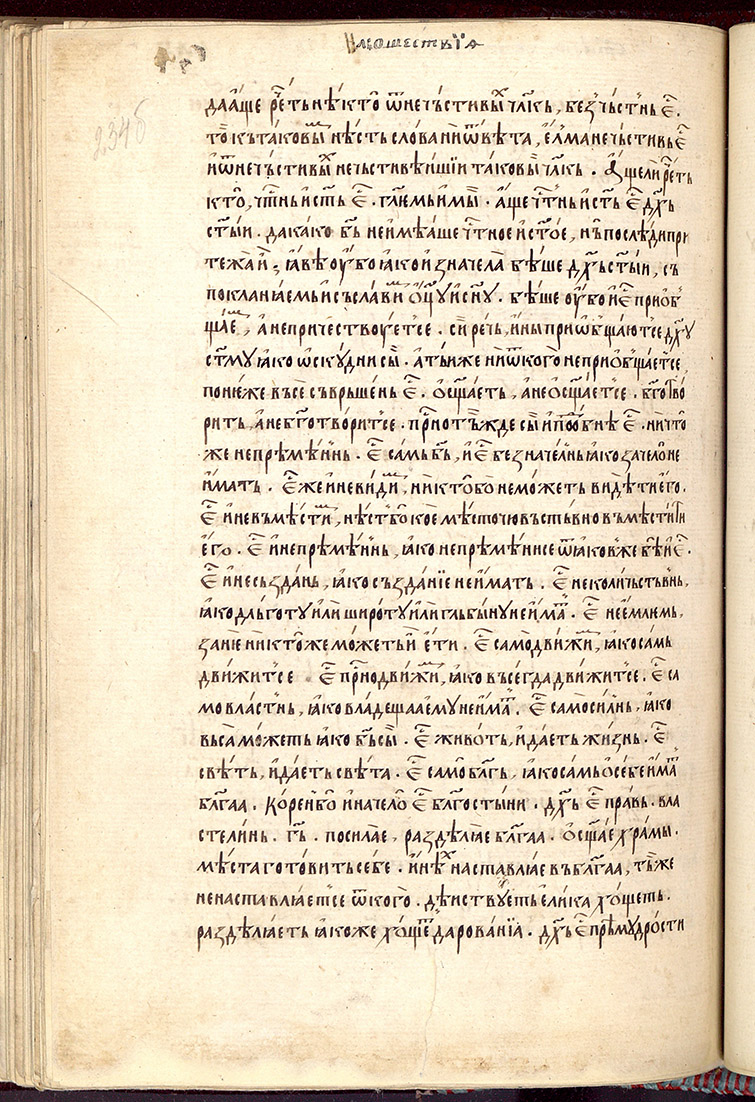 да а҆ще рⷱ҇еть нѣ́ктоⷪ҇ ѿ неч҇ьстивыⷯ҇ чл҃кь, без̾ч҇ьстⷩ҇ь є҃ⷭ҇.
то̏ къ таковыⷨ нѣ́сть слова ни ѿвѣ́та, є҆л̾ма неч҇ьстивь є҃ⷭ҇
и҆ ѿ неч҇ьстивыⷯ нечьстивѣ́ишїи таковыи чл҃кь. А҆ще ли рⷱ҇еть
кто̏, чⷭ҇тнь и҆ ст҃ь є҃ⷭ҇. гл҃емь и҆ мы̏. а҆ще чⷭ҇тнь и҆ ст҃ь є҃ⷭ҇ дх҃ь
ст҃ыи. да ка́ко б҃ь не и҆мѣ́аше чⷭ҇тное и҆ ст҃ое, нь послѣ́ди при
тежа́ и҆̏; ꙗ҆вѣ ᲂу҆бо ꙗ҆ко и҆значела бѣ́ше дх҃ь ст҃ыи, съ
покланꙗ́емь и҆ съслави́ⷨ ѻ҆ц҃ꙋ и҆ сн҃ꙋ. бѣ́ше ᲂу҆бо и҆ є҃ⷭ҇ приѻ҆б
ща́еⷨ, а҆ непричествꙋ́етсе. си̏ рѣчь, и҆ны приѻ҆бщаю́тсе дх҃ꙋ
ст҃мꙋ ꙗ҆ко ѡ҆скꙋ́дни сы̏. а҆ ты́иже ни ѿ кого не приѻ҆бща́етсе,
пони́еже въсе съврьше́нь є҃ⷭ҇. ѻ҆сщ҃а́еть, а҆ не ѻ҆сщ҃а́етсе. бл҃готво
рить, а҆ не бл҃готвори́тсе. при́сно тъ́жде сы̏ и҆ подо́бнѣ є҃ⷭ҇. ничто̏
же непрѣмѣ́н̾нь. є҃ⷭ҇ са́мь б҃ь, и҆ є҃ⷭ҇ безначе́лнь ꙗ҆ко заче́ло не
и҆мать. є҃ⷭ҇ же и҆ невиди́ⷨ, никто̏ бо̏ не мо́жеть ви́дѣти є҆го̀.
є҃ⷭ҇ и҆ невъмѣсти́ⷨ, нѣ́сⷮ бо̏ кое мѣ́сто чю́въстьвно въмѣсти́ти
є҆го̀. є҃ⷭ҇ и҆ непрѣмѣ́н̾нь, ꙗ҆ко не прѣмѣ́нисе ѿ ꙗ҆ковже бѣ̏ и҆ є҃ⷭ҇.
є҃ⷭ҇ и҆ несъзда́нь, ꙗ҆ко създа́нїе не и҆мать. є҃ⷭ҇ неколи́чьствⷩ҇ь,
ꙗ҆ко дльготꙋ и҆ли широтꙋ и҆ли гльбынꙋ не и҆маⷮ. є҃ⷭ҇ неє҆млюмь,
зание никтоже може́ть и҆̏ є҆ти. є҃ⷭ҇ само̏движи́ⷨ, ꙗ҆ко са́мь
дви́житсе. є҃ⷭ҇ присно̏движи́ⷨ, ꙗ҆ко въсегда дви́житсе. є҃ⷭ҇ са
мовла́стⷩ҇ь, ꙗ҆ко владе́щаа є҆мꙋ не и҆маⷮ. є҃ⷭ҇ само̏си́лнь, ꙗ҆ко
вьса мо́жеть ꙗ҆ко б҃ь сы̏. є҃ⷭ҇ живо́ть, и҆ да́еть жи́знь. є҃ⷭ҇
свѣ́ть, и҆ да́еть свѣ́та. є҃ⷭ҇ само̏ бл҃гь, ꙗ҆ко са́мь ѻ҆ себѣ и҆маⷮ
бл҃гаа. Ко́рень бо̏ и҆ начело̏ є҃ⷭ҇ бл҃госты́ни. дх҃ь є҃ⷭ҇ пра́вь. вла
стели́нь. г҃ь. посила́е, раздѣлꙗ́е бл҃гаа. ѻ҆сщ҃а́е хра́мы.
мѣ́ста гото́вить себе. и҆нѣⷯ наставлꙗ́е въ бл҃гаа, тъ́же
не наставлꙗ́етсе ѿ кого. дѣ́иствꙋеть є҆ли́ка хо́щеть.
раздѣлꙗ́еть ꙗ҆коже хо́щеⷮ дарова́нїа. дх҃ь є҃ⷭ҇ прѣмꙋ́дрости